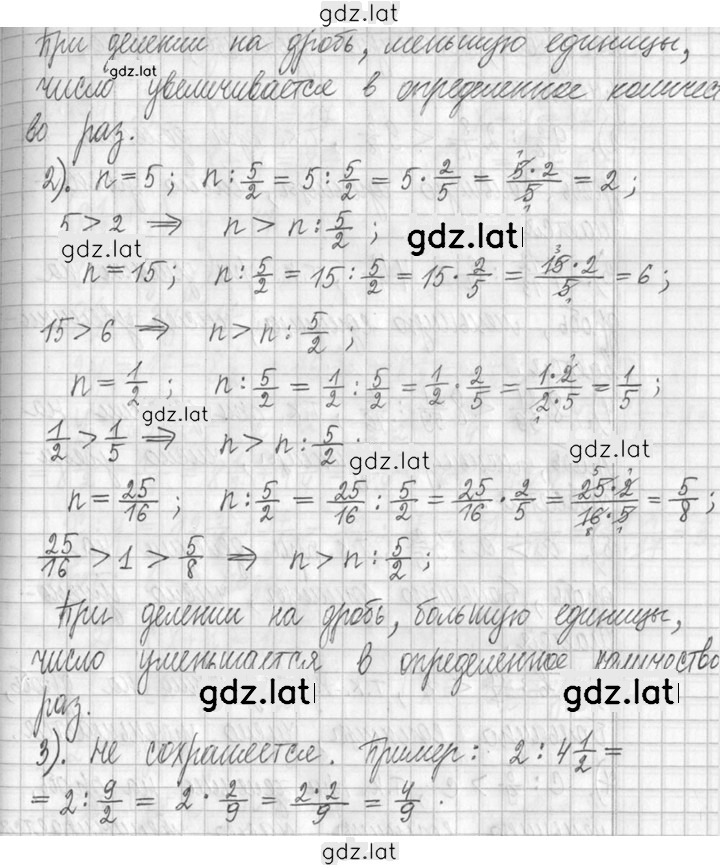 gdz.lat
При делении на дробь, меньшую единицы,
gdz.lat
число увеличивается в определенное количест
во раз.
2). n = 5 ; n : 5/2 = 5 : 5/2 = 5 · 2/5 = 5 · 2/5 = 2 ;
5 > 2 ⇒ n > n : 5/2 ;
gdz.lat gdz.lat
n = 15 ; n : 5/2 = 15 : 5/2 = 15 · 2/5 = 15 · 2/5 = 6 ;
15 > 6 ⇒ n > n : 5/2 ;
n = 1/2 ; n : 5/2 = 1/2 : 5/2 = 1/2 · 2/5 = 1 · 2/2 · 5 = 1/5 ;
gdz.lat
1/2 > 1/5 ⇒ n > n : 5/2 .
gdz.lat gdz.lat
n = 25/16 ; n : 5/2 = 25/16 : 5/2 = 25/16 · 2/5 = 25 · 2/16 · 5 = 5/8 ;
25/16 > 1 > 5/8 ⇒ n > n : 5/2 ;
При делении на дробь, большую единицы,
число уменьшается в определенное количество
gdz.lat gdz.lat
раз.
3). не сохраняется. Пример : 2 : 4 1/2 =
= 2 : 9/2 = 2 · 2/9 = 2 · 2/9 = 4/9 .
gdz.lat